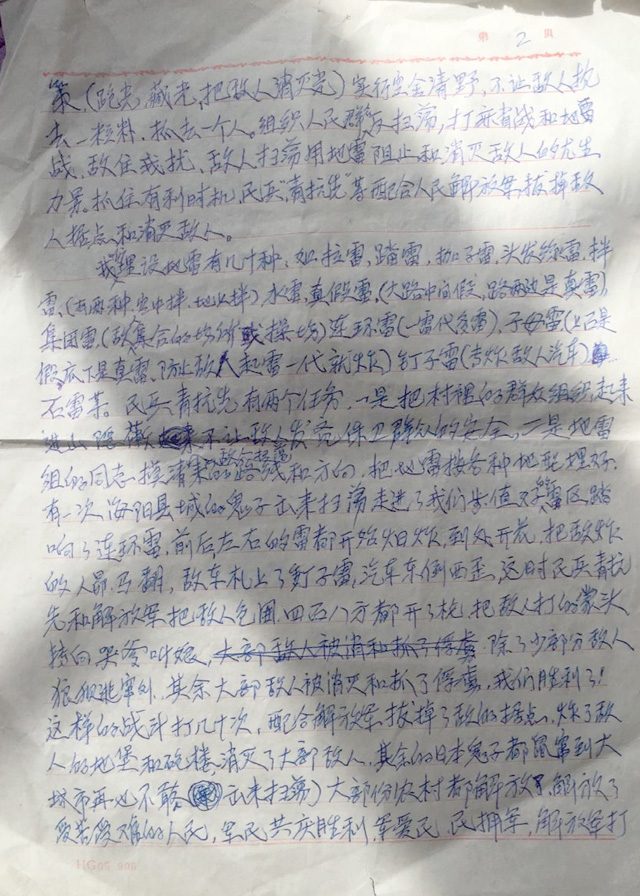 第 2 页
策、(跑光、藏光、把敌人消灭光)实行空舍清野,不让敌人抢
去一粒料、抓去一个人。组织人民群众反扫荡,打麻雀战和地雷
战、敌住我扰、敌人扫荡用地雷阻止和消灭敌人的有生
力量。抓住有利时机、民兵“青抗先”等配合人民解放军、拔掉敌
人据点和消灭敌人。
我埋设地雷有几十种,如拉雷、踏雷、夹子雷、头发丝雷、拌
雷、(有两种、空中拌、地上拌)水雷、真假雷、(大路中间假、路两边是真雷)、
集团雷、(敌集合的场所或操场)连环雷(一雷代多雷)、子母雷(上面是
假底下是真雷、防止敌人起雷一代就炸)钉子雷(专炸敌人汽车)
石雷等。民兵青抗先有两个任务、一是把村裡的群众组织起来
进山隐藏起来不让敌人发觉、保卫群众的安全。二是地雷
组的同志摸清来的路线和方向、把地雷按各种地配埋好。
有一次、海阳县城的鬼子出来扫荡走进了我们雷区踏
响了连环雷,前后左右的雷都开始爆炸,到处开花,把敌炸
的人昂马翻,敌车扎上了钉子雷,汽车东倒西歪,这时民兵青抗
先和解放军把敌人包围,四面八方都开了枪,把敌人打的蒙头
转向哭爹叫娘,大部敌人被消和抓了俘虏 除了少部分敌人
狼狈逃窜外,其余大部敌人被消灭和抓了俘虏,我们胜利了!
这样的战斗打几十次,配合解放军,拔掉了敌的据点、炸了敌
人的地堡和砲楼,消灭了大部敌人,其余的日本鬼子都鼠窜到大
城市再也不敢出来扫荡)大部份农村都解放了,解放了
受苦受难的人民,军民共庆胜利,军爱民,民拥军,解放军打